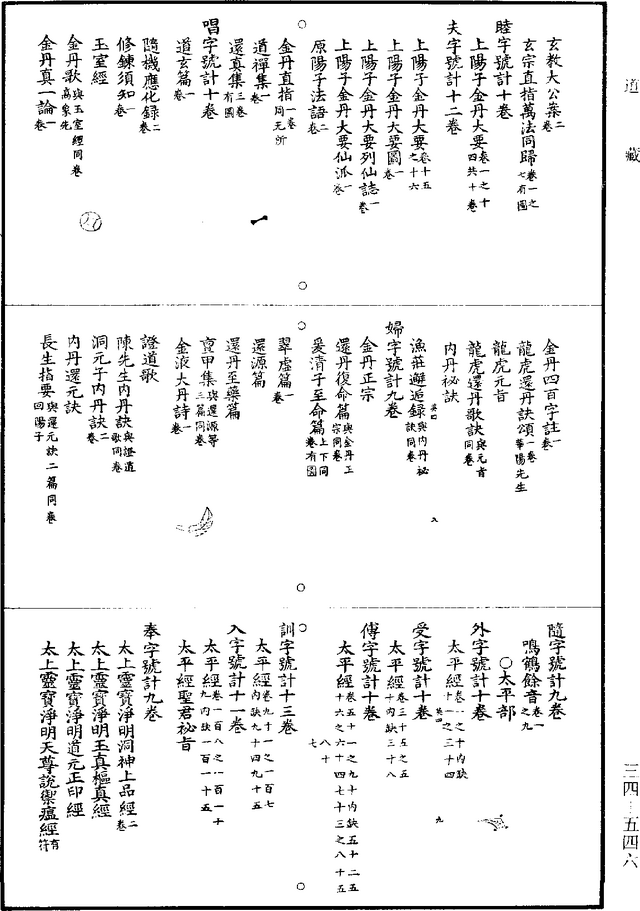 道藏
玄教大公案二卷
玄宗直指萬法同歸卷一之七有圖
睦字號計十卷
上陽子金丹大要卷一之十四共十卷
夫字號計十二卷
上陽子金丹大要卷十五之十六
上陽子金丹大要圖一卷
上陽子金丹大要列仙誌一卷
上陽子金丹大要仙派一卷
原陽子法語二卷
金丹直指一卷周无所
道禪集一卷
還真集三卷有圖
唱字號計十卷
道玄篇一卷
隨機應化錄二卷
修鍊須知一卷
玉室經
金丹歌與玉室經同卷高象先
金丹真一論一卷
金丹四百字註一卷
龍虎還丹訣頌一卷華陽先生
龍虎元旨
龍虎還丹歌訣與元旨同卷
內丹祕訣
漁莊邂逅錄與內丹祕訣同卷
婦字號計九卷
金丹正宗
還丹復命篇與金丹正宗同卷
爰清子至命篇上下同卷有圖
翠虛篇一卷
還源篇
還丹至藥篇
亶甲集與還源等三篇同卷
金液大丹詩一卷
證道歌
陳先生內丹訣與證道歌同卷
洞元子內丹訣二卷
內丹還元訣
長生指要與還元訣二篇同卷回陽子
隨字號計九卷
鳴鶴餘音卷一之九
○太平部
外字號計十卷
太平經卷一之十內缺十一之三十四
受字號計十卷
太平經卷三十五之五十內缺三十八
傅字號計十卷
太平經卷五十一之九十內缺五十二五十六之六十四七十三之八十五八十七
訓字號計十三卷
太平經卷九十一之一百七內缺九十四九十五
入字號計十一卷
太平經卷一百八之一百一十九內缺一百一十五
太平經聖君祕旨
奉字號計九卷
太上靈寶淨明洞神上品經二卷
太上靈寶淨明玉真樞真經
太上靈寶淨明道元正印經
太上靈寶淨明天尊說禦瘟經有符
三四－五四六